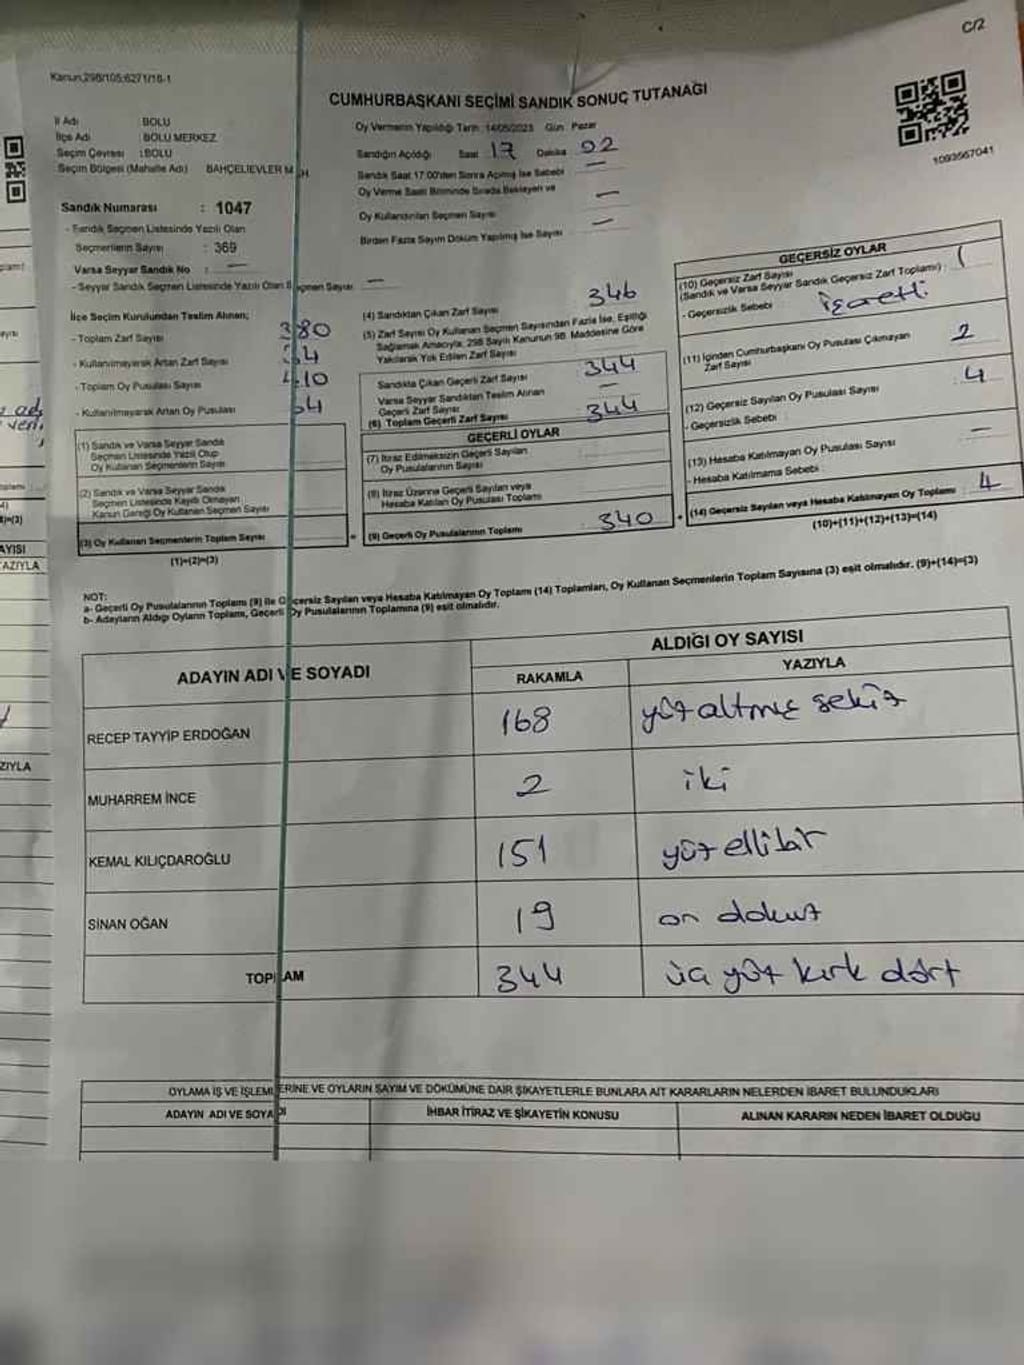 C/2
Kanun,298/105:6271/16-1
CUMHURBAŞKANI SEÇİMİ SANDIK SONUÇ TUTANAĞI
1093567041
İl Adı BOLU
İlçe Adı BOLU MERKEZ
Seçim Çevresi :BOLU
Seçim Bölgesi (Mahalle Adı) BAHÇELİEVLER M
Sandık Numarası : 1047
- Sandık Seçmen Listesinde Yazılı Olan
Seçmenlerin Sayısı : 369
Varsa Seyyar Sandık No : —
- Seyyar Sandık Seçmen Listesinde Yazılı Olan Seçmen Sayısı —
Oy Vermenin Yapıldığı Tarih :14/05/2023 Gün : Pazar
Sandığın Açıldığı Saat 17 Dakika 02
Sandık Saat 17:00'den Sonra Açılmış İse Sebebi —
Oy Verme Saati Bitiminde Sırada Bekleyen ve
Oy Kullandırılan Seçmen Sayısı —
Birden Fazla Sayım Döküm Yapılmış İse Sayısı —
İlçe Seçim Kurulundan Teslim Alınan;
- Toplam Zarf Sayısı 380
- Kullanılmayarak Artan Zarf Sayısı 34
- Toplam Oy Pusulası Sayısı 410
- Kullanılmayarak Artan Oy Pusulası 64
(1) Sandık ve Varsa Seyyar Sandık
Seçmen Listesinde Yazılı Olup
Oy Kullanan Seçmenlerin Sayısı
(2) Sandık ve Varsa Seyyar Sandık
Seçmen Listesinde Kayıtlı Olmayan
Kanun Gereği Oy Kullanan Seçmen Sayısı
(3) Oy Kullanan Seçmenlerin Toplam Sayısı
(1)+(2)=(3)
(4) Sandıktan Çıkan Zarf Sayısı 346
(5) Zarf Sayısı Oy Kullanan Seçmen Sayısından Fazla İse, Eşitliği
Sağlamak Amacıyla, 298 Sayılı Kanunun 98. Maddesine Göre
Yakılarak Yok Edilen Zarf Sayısı
Sandıkta Çıkan Geçerli Zarf Sayısı 344
Varsa Seyyar Sandıktan Teslim Alınan
Geçerli Zarf Sayısı —
(6) Toplam Geçerli Zarf Sayısı 344
GEÇERLİ OYLAR
(7) İtiraz Edilmeksizin Geçerli Sayılan
Oy Pusulalarının Sayısı
(8) İtiraz Üzerine Geçerli Sayılan veya
Hesaba Katılan Oy Pusulası Toplamı
(9) Geçerli Oy Pusulalarının Toplamı 340
GEÇERSİZ OYLAR
(10) Geçersiz Zarf Sayısı
(Sandık ve Varsa Seyyar Sandık Geçersiz Zarf Toplamı) : 1
- Geçersizlik Sebebi işaretli
(11) İçinden Cumhurbaşkanı Oy Pusulası Çıkmayan
Zarf Sayısı 2
(12) Geçersiz Sayılan Oy Pusulası Sayısı 4
- Geçersizlik Sebebi :
(13) Hesaba Katılmayan Oy Pusulası Sayısı —
- Hesaba Katılmama Sebebi :
(14) Geçersiz Sayılan veya Hesaba Katılmayan Oy Toplamı : 4
(10)+(11)+(12)+(13)=(14)
NOT:
a- Geçerli Oy Pusulalarının Toplamı (9) ile Geçersiz Sayılan veya Hesaba Katılmayan Oy Toplamı (14) Toplamları, Oy Kullanan Seçmenlerin Toplam Sayısına (3) eşit olmalıdır. (9)+(14)=(3)
b- Adayların Aldığı Oyların Toplamı, Geçerli Oy Pusulalarının Toplamına (9) eşit olmalıdır.
ADAYIN ADI VE SOYADI ALDIĞI OY SAYISI
RAKAMLA YAZIYLA
RECEP TAYYİP ERDOĞAN 168 yüz altmış sekiz
MUHARREM İNCE 2 iki
KEMAL KILIÇDAROĞLU 151 yüz elli bir
SİNAN OĞAN 19 on dokuz
TOPLAM 344 üç yüz kırk dört
OYLAMA İŞ VE İŞLEMLERİNE VE OYLARIN SAYIM VE DÖKÜMÜNE DAİR ŞİKAYETLERLE BUNLARA AİT KARARLARIN NELERDEN İBARET BULUNDUKLARI
ADAYIN ADI VE SOYADI İHBAR İTİRAZ VE ŞİKAYETİN KONUSU ALINAN KARARIN NEDEN İBARET OLDUĞU